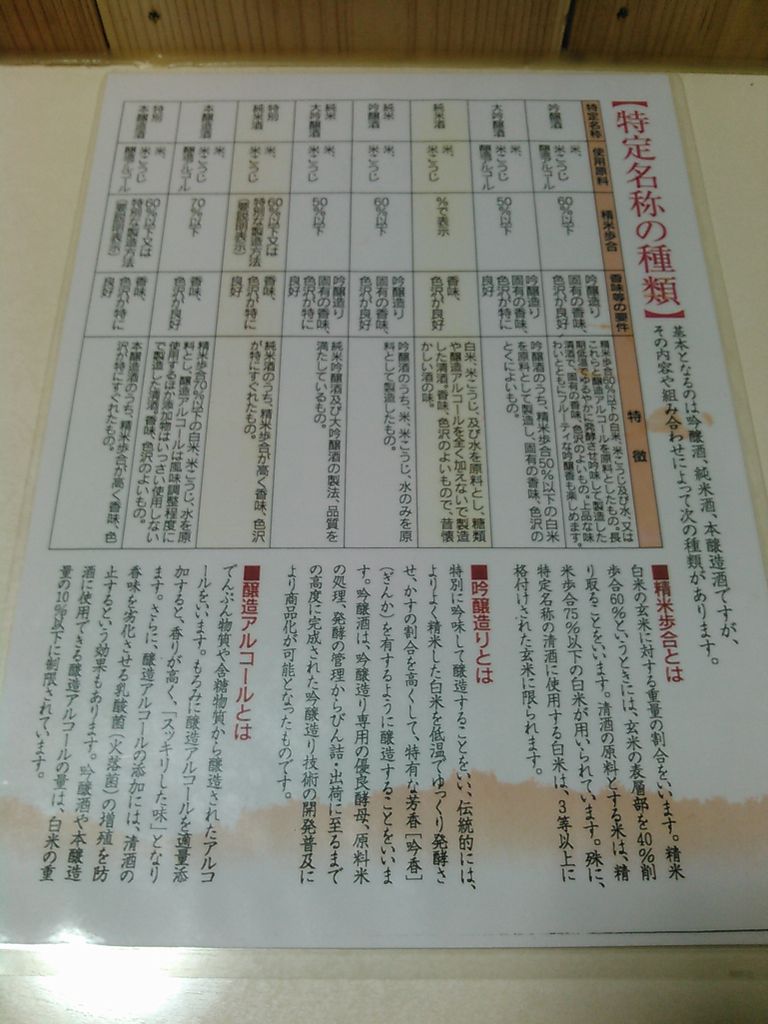 【特定名称の種類】
基本となるのは吟醸酒、純米酒、本醸造酒ですが、
その内容や組み合わせによって次の種類があります。
特定名称
使用原料
精米歩合
香味等の要件
特徴
吟醸酒
米、
米こうじ
醸造アルコール
60％以下
吟醸造り
固有の香味、
色沢が良好
精米歩合60％以下の白米、米こうじ及び水、又は
これらと醸造アルコールを原料としたもの。長
期低温でゆるやかに発酵させ吟味して製造した
清酒で、固有の香味、色沢のよいもの。上品な味
わいとともにフルーティな吟醸香も楽しめます。
大吟醸酒
米、
米こうじ
醸造アルコール
50％以下
吟醸造り
固有の香味、
色沢が良好
吟醸酒のうち、精米歩合50％以下の白米
を原料として製造し、固有の香味、色沢の
とくによいもの。
純米酒
米、
米こうじ
％で表示
香味、
色沢が良好
白米、米こうじ、及び水を原料とし、糖類
や醸造アルコールを全く加えないで製造
した清酒。香味、色沢のよいもので、昔懐
かしい酒の味。
純米
吟醸酒
米、
米こうじ
60％以下
吟醸造り
固有の香味、
色沢が良好
吟醸酒のうち、米、米こうじ、水のみを原
料として製造したもの。
純米
大吟醸酒
米、
米こうじ
50％以下
吟醸造り
固有の香味、
色沢が特に
良好
純米吟醸酒及び大吟醸酒の製法、品質を
満たしているもの。
特別
純米酒
米、
米こうじ
60％以下又は
特別な製造方法
（要説明表示）
香味、
色沢が特に
良好
純米酒のうち、精米歩合が高く香味、色沢
が特にすぐれたもの。
本醸造酒
米、
米こうじ
醸造アルコール
70％以下
香味、
色沢が良好
精米歩合70％以下の白米、米こうじ、水を原
料とし、醸造アルコールは風味調整程度に
使用するほか添加物はいっさい使用しない
で製造した清酒。香味、色沢のよいもの。
特別
本醸造酒
米、
米こうじ
醸造アルコール
60％以下又は
特別な製造方法
（要説明表示）
香味、
色沢が特に
良好
本醸造酒のうち、精米歩合が高く香味、色
沢が特にすぐれたもの。
■精米歩合とは
白米の玄米に対する重量の割合をいいます。精米
歩合60％というときには、玄米の表層部を40％削
り取ることをいいます。清酒の原料とする米は、精
米歩合75％以下の白米が用いられています。殊に、
特定名称の清酒に使用する白米は、3等以上に
格付けされた玄米に限られます。
■吟醸造りとは
特別に吟味して醸造することをいい、伝統的には、
よりよく精米した白米を低温でゆっくり発酵さ
せ、かすの割合を高くして、特有な芳香［吟香］
（ぎんか）を有するように醸造することをいいま
す。吟醸酒は、吟醸造り専用の優良酵母、原料米
の処理、発酵の管理からびん詰・出荷に至るまで
の高度に完成された吟醸造り技術の開発普及に
より商品化が可能となったものです。
■醸造アルコールとは
でんぷん物質や含糖物質から醸造されたアルコ
ールをいいます。もろみに醸造アルコールを適量添
加すると、香りが高く、「スッキリした味」となり
ます。さらに、醸造アルコールの添加には、清酒の
香味を劣化させる乳酸菌（火落菌）の増殖を防
止するという効果もあります。吟醸酒や本醸造
酒に使用できる醸造アルコールの量は、白米の重
量の10％以下に制限されています。